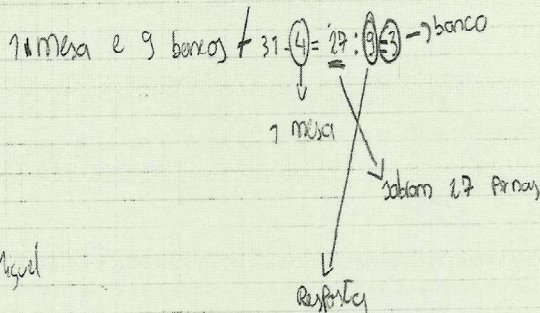 1 mesa e 9 bancos 31-4= 27:9=3 → banco
1 mesa
sobram 27 pernas
Miguel
Resposta